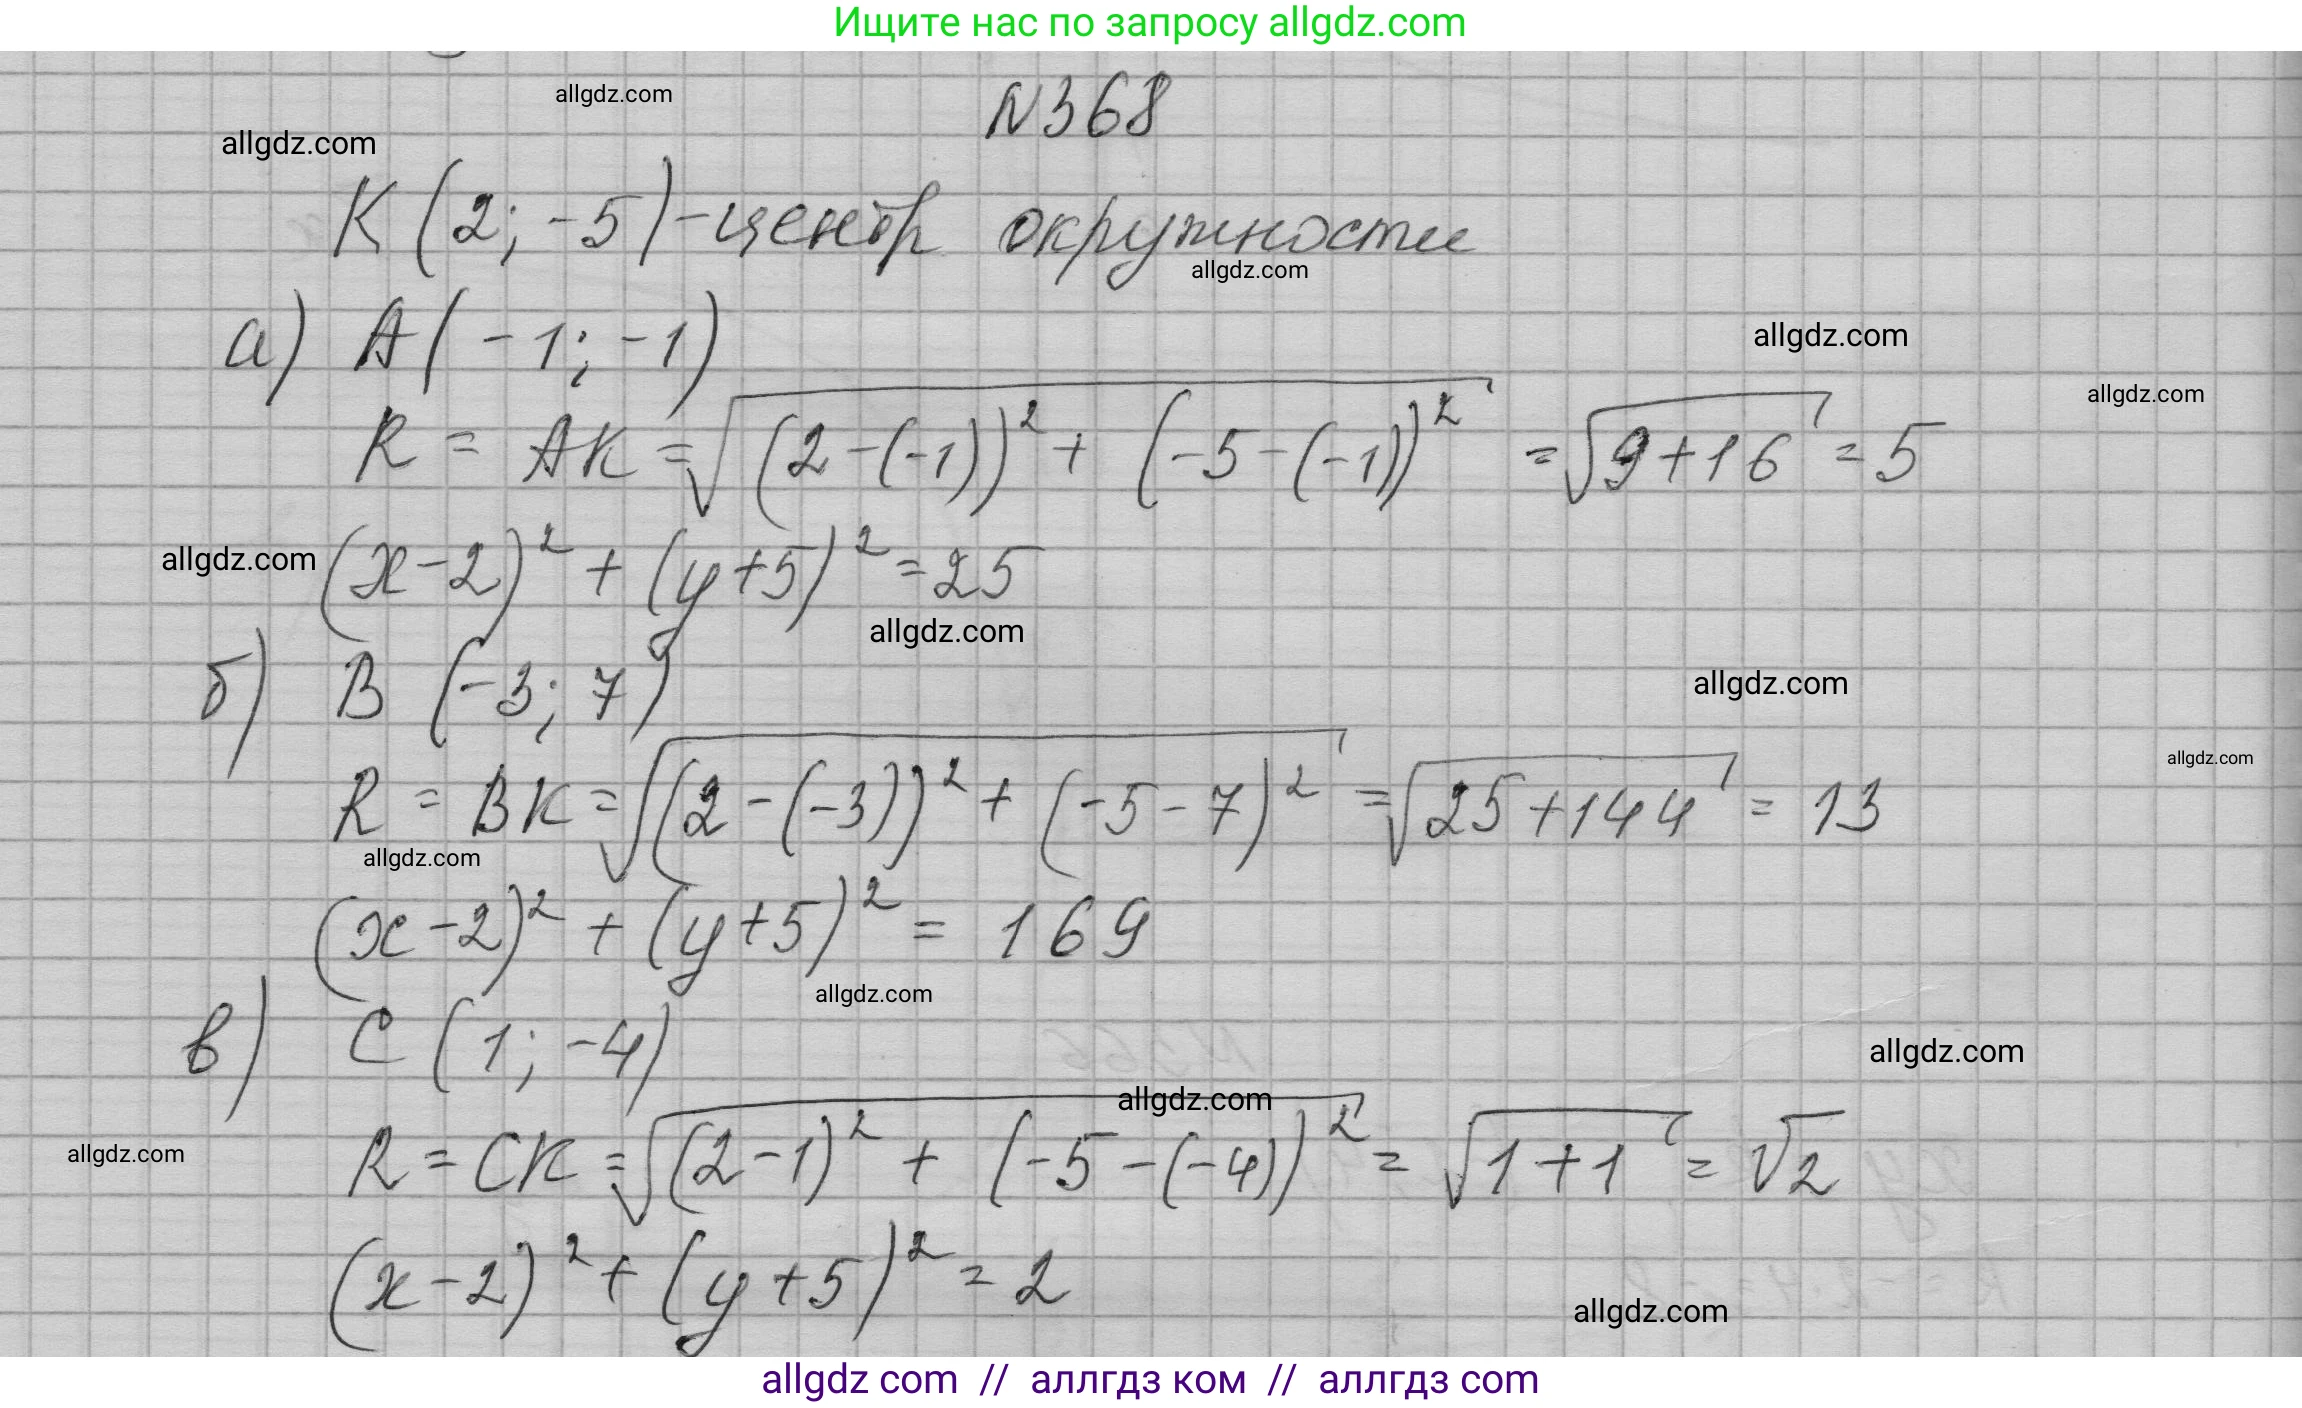 Ищите нас по запросу allgdz.com
allgdz.com
N368
allgdz.com
K (2; -5) - центр окружности
allgdz.com
а) A (-1; -1)
allgdz.com
allgdz.com
R = AK = √((2-(-1))² + (-5-(-1))²) = √(9+16) = 5
allgdz.com
(x-2)² + (y+5)² = 25
allgdz.com
б) B (-3; 7)
allgdz.com
allgdz.com
R = BK = √((2-(-3))² + (-5-7)²) = √(25+144) = 13
allgdz.com
(x-2)² + (y+5)² = 169
allgdz.com
в) C (1; -4)
allgdz.com
allgdz.com
allgdz.com
R = CK = √((2-1)² + (-5-(-4))²) = √(1+1) = √2
(x-2)² + (y+5)² = 2
allgdz.com
allgdz com // аллгдз ком // аллгдз com